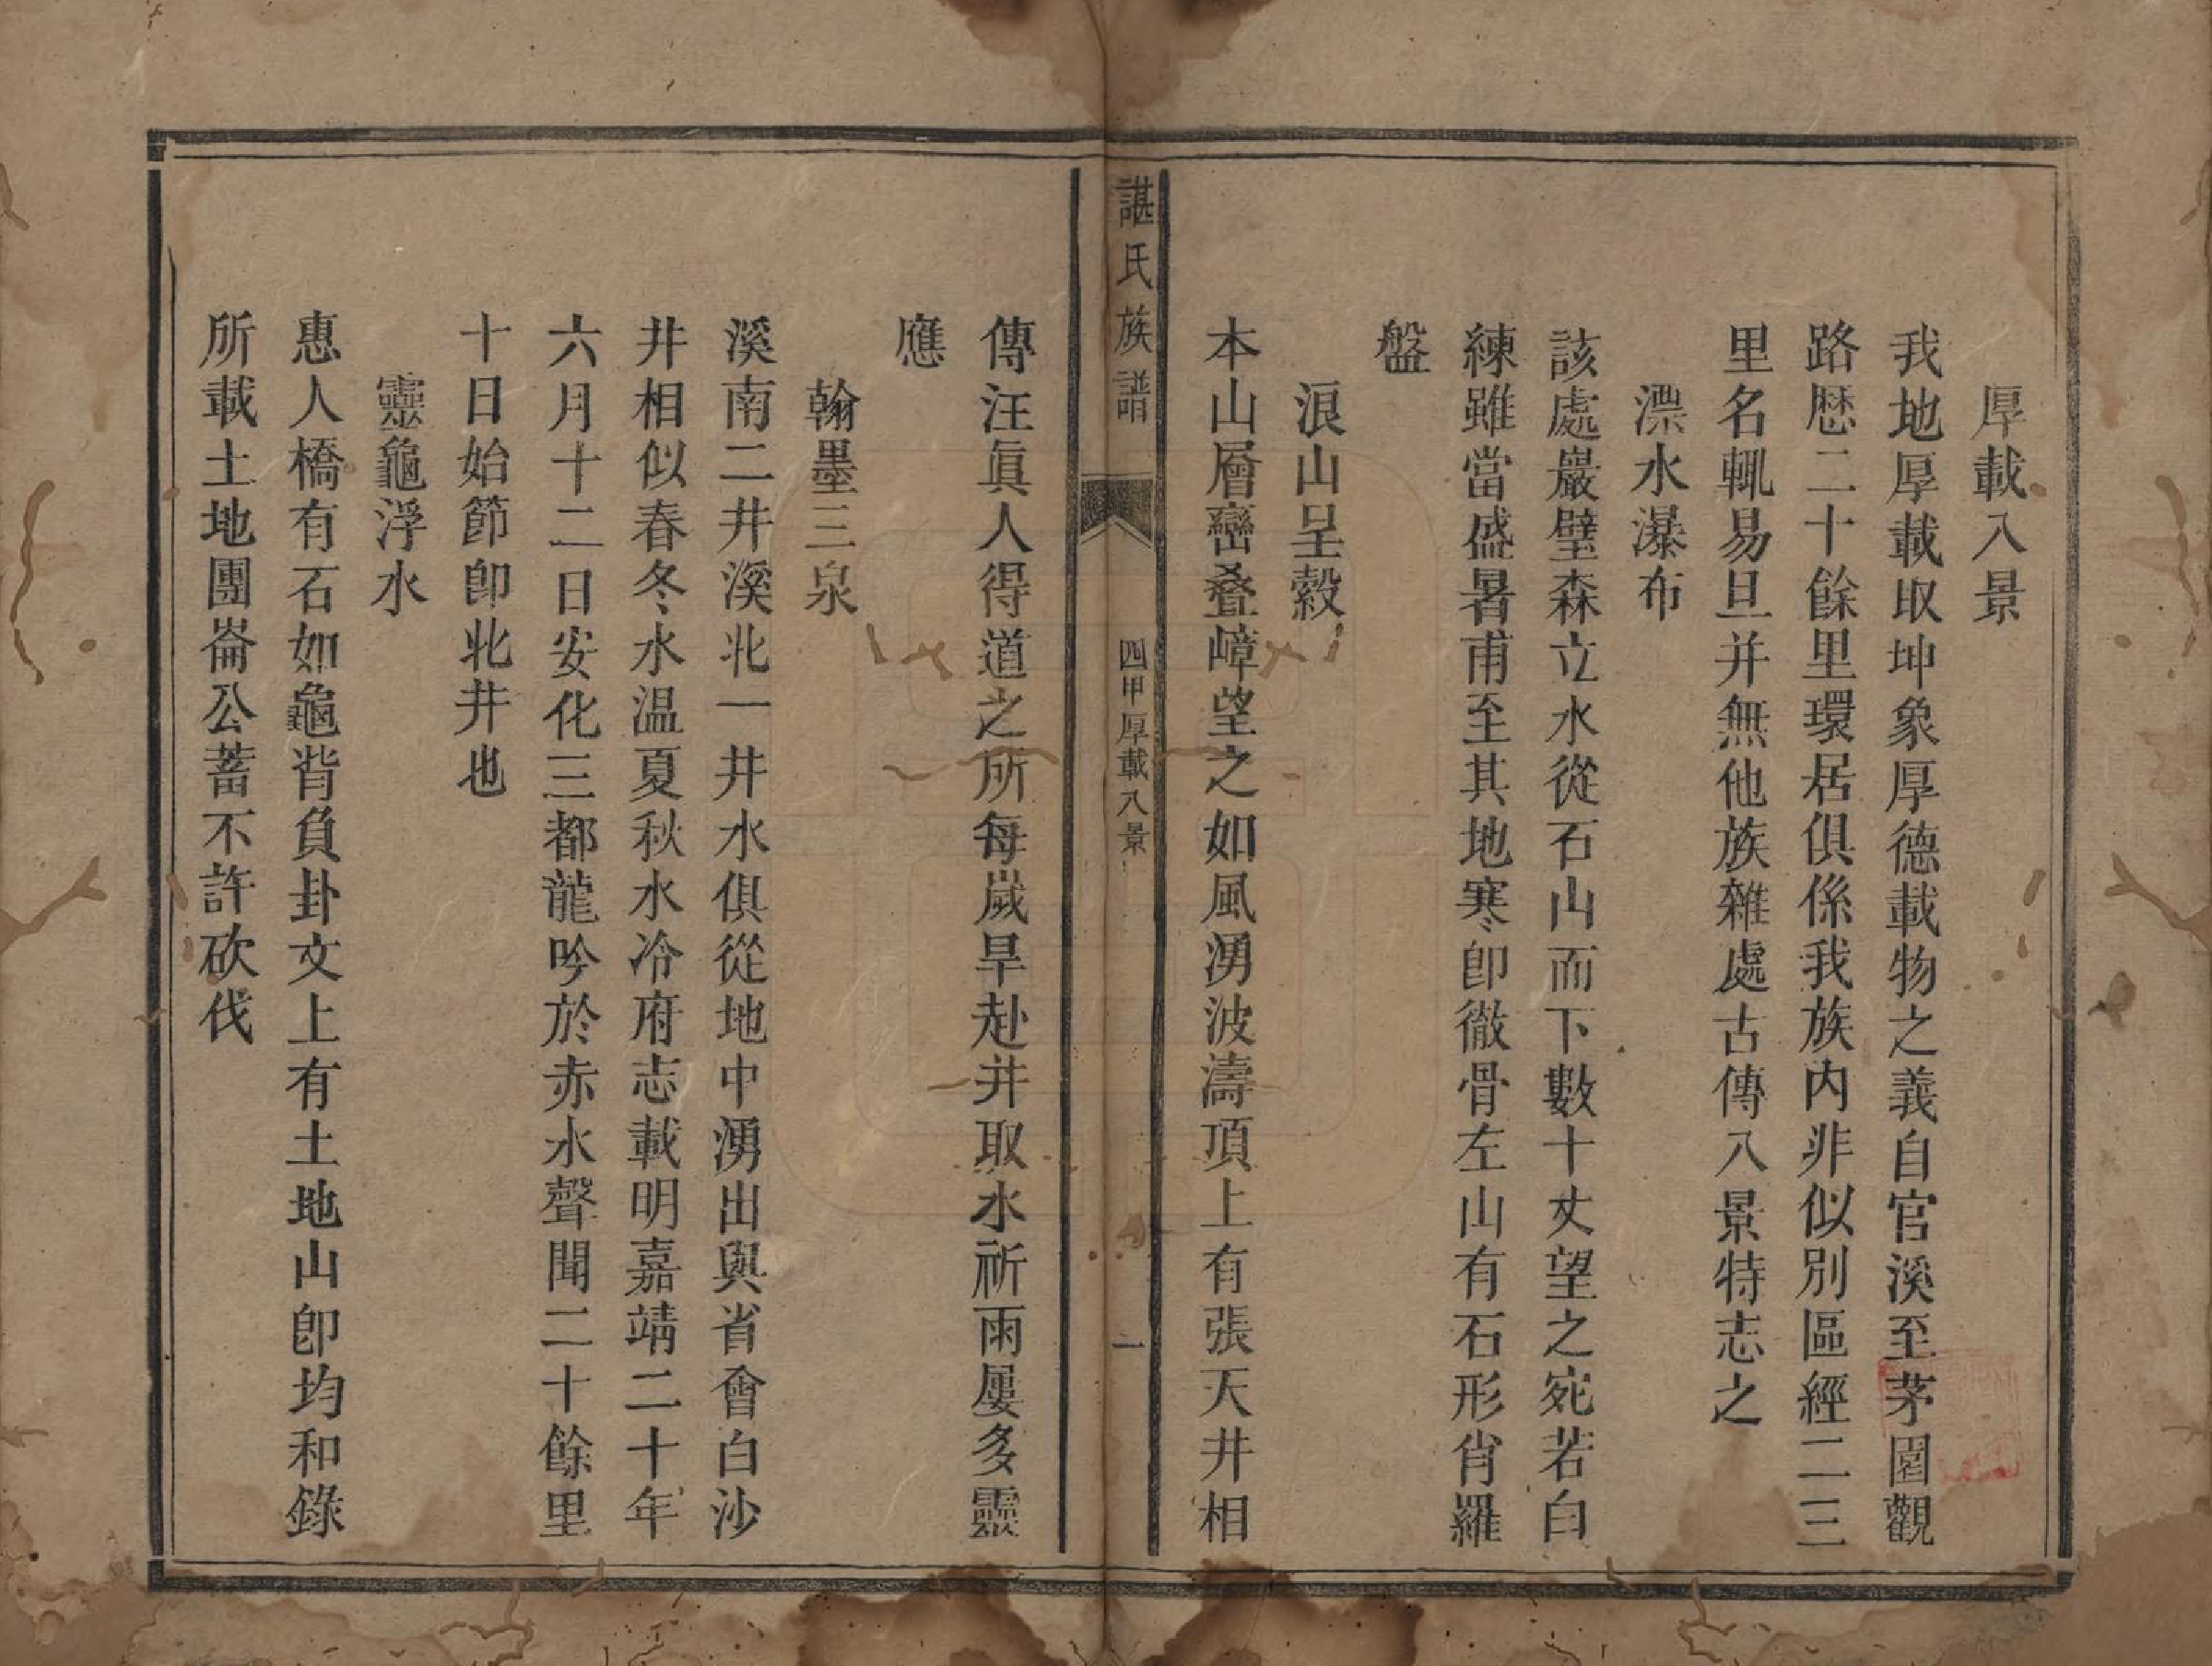 厚載八景
我地厚載取坤象厚德載物之義自官溪至茅園觀
路歷二十餘里環居俱係我族內非似別區經二三
里名輒易且并無他族雜處古傳八景特志之
漂水瀑布
該處巖壁森立水從石山而下數十丈望之宛若白
練雖當盛暑甫至其地寒卽徹骨左山有石形肖羅
盤
浪山呈縠
本山層巒叠嶂望之如風湧波濤頂上有張天井相
諶氏族譜
四甲厚載八景
一
傳汪眞人得道之所每歲旱赴井取水祈雨屢多靈
應
翰墨三泉
溪南二井溪北一井水俱從地中湧出與省會白沙
井相似春冬水温夏秋水冷府志載明嘉靖二十年
六月十二日安化三都龍吟於赤水聲聞二十餘里
十日始節卽北井也
靈龜浮水
惠人橋有石如龜背負卦文上有土地山卽均和錄
所載土地團崙公蓄不許砍伐